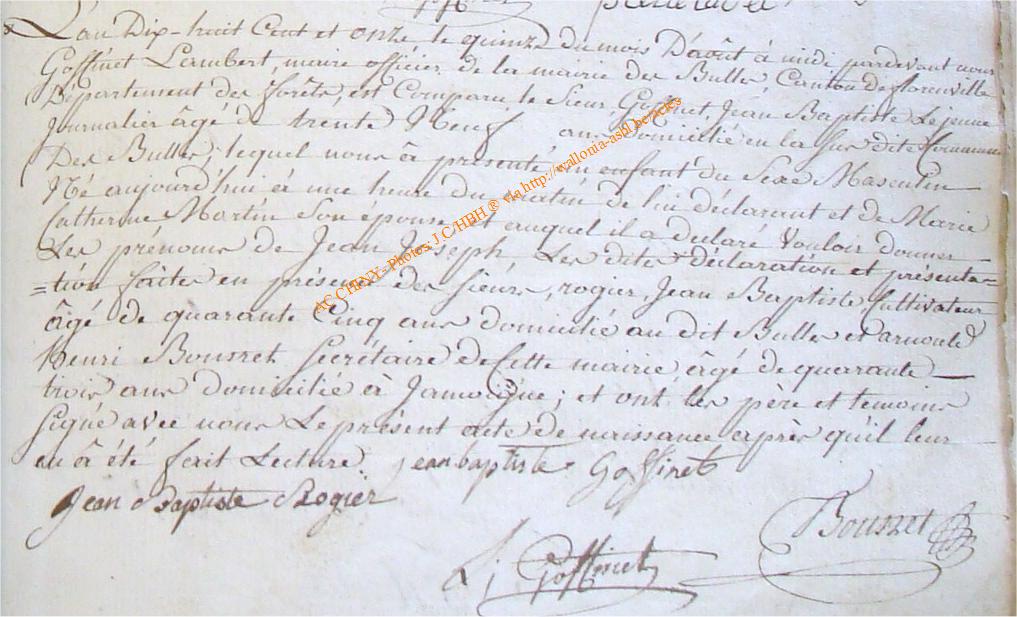 L'an Dix-huit Cent et onze le quinze du mois D'août à midi pardevant nous
Goffinet Lambert, maire officier de la mairie des Bulles, Canton de florenville
Département des forêts, est Comparu le Sieur Goffinet, Jean Baptiste Lejeune
Journalier âgé de trente Neuf ans domicilié en la sus dite Commune
Des Bulles, lequel nous à présenté un enfant du Sexe Masculin
Né aujourd'hui à une heure du matin de lui déclarant et de Marie
Catherine Martin Son épouse et auquel il a declaré Vouloir donner
Les prénoms de Jean Joseph, Les dites déclaration et présenta=
=tion faites en présence des sieurs, rogier Jean Baptiste, Cultivateur
âgé de quarante Cinq ans domicilié au dit Bulles et arnould
Henri Bousret Secrétaire de Cette mairie âgé de quarante
trois ans domicilié à Jamoigne; et ont les père et temoins
signé avec nous Le présent acte de naissance après qu'il leur
en à été fait Lecture. jean baptiste Goffinet
Jean Baptiste Rogier
Bousret
L; Goffinet
ACCHINY - Photos: J C/HBH ® via http://wallonia-asbl.be/actes